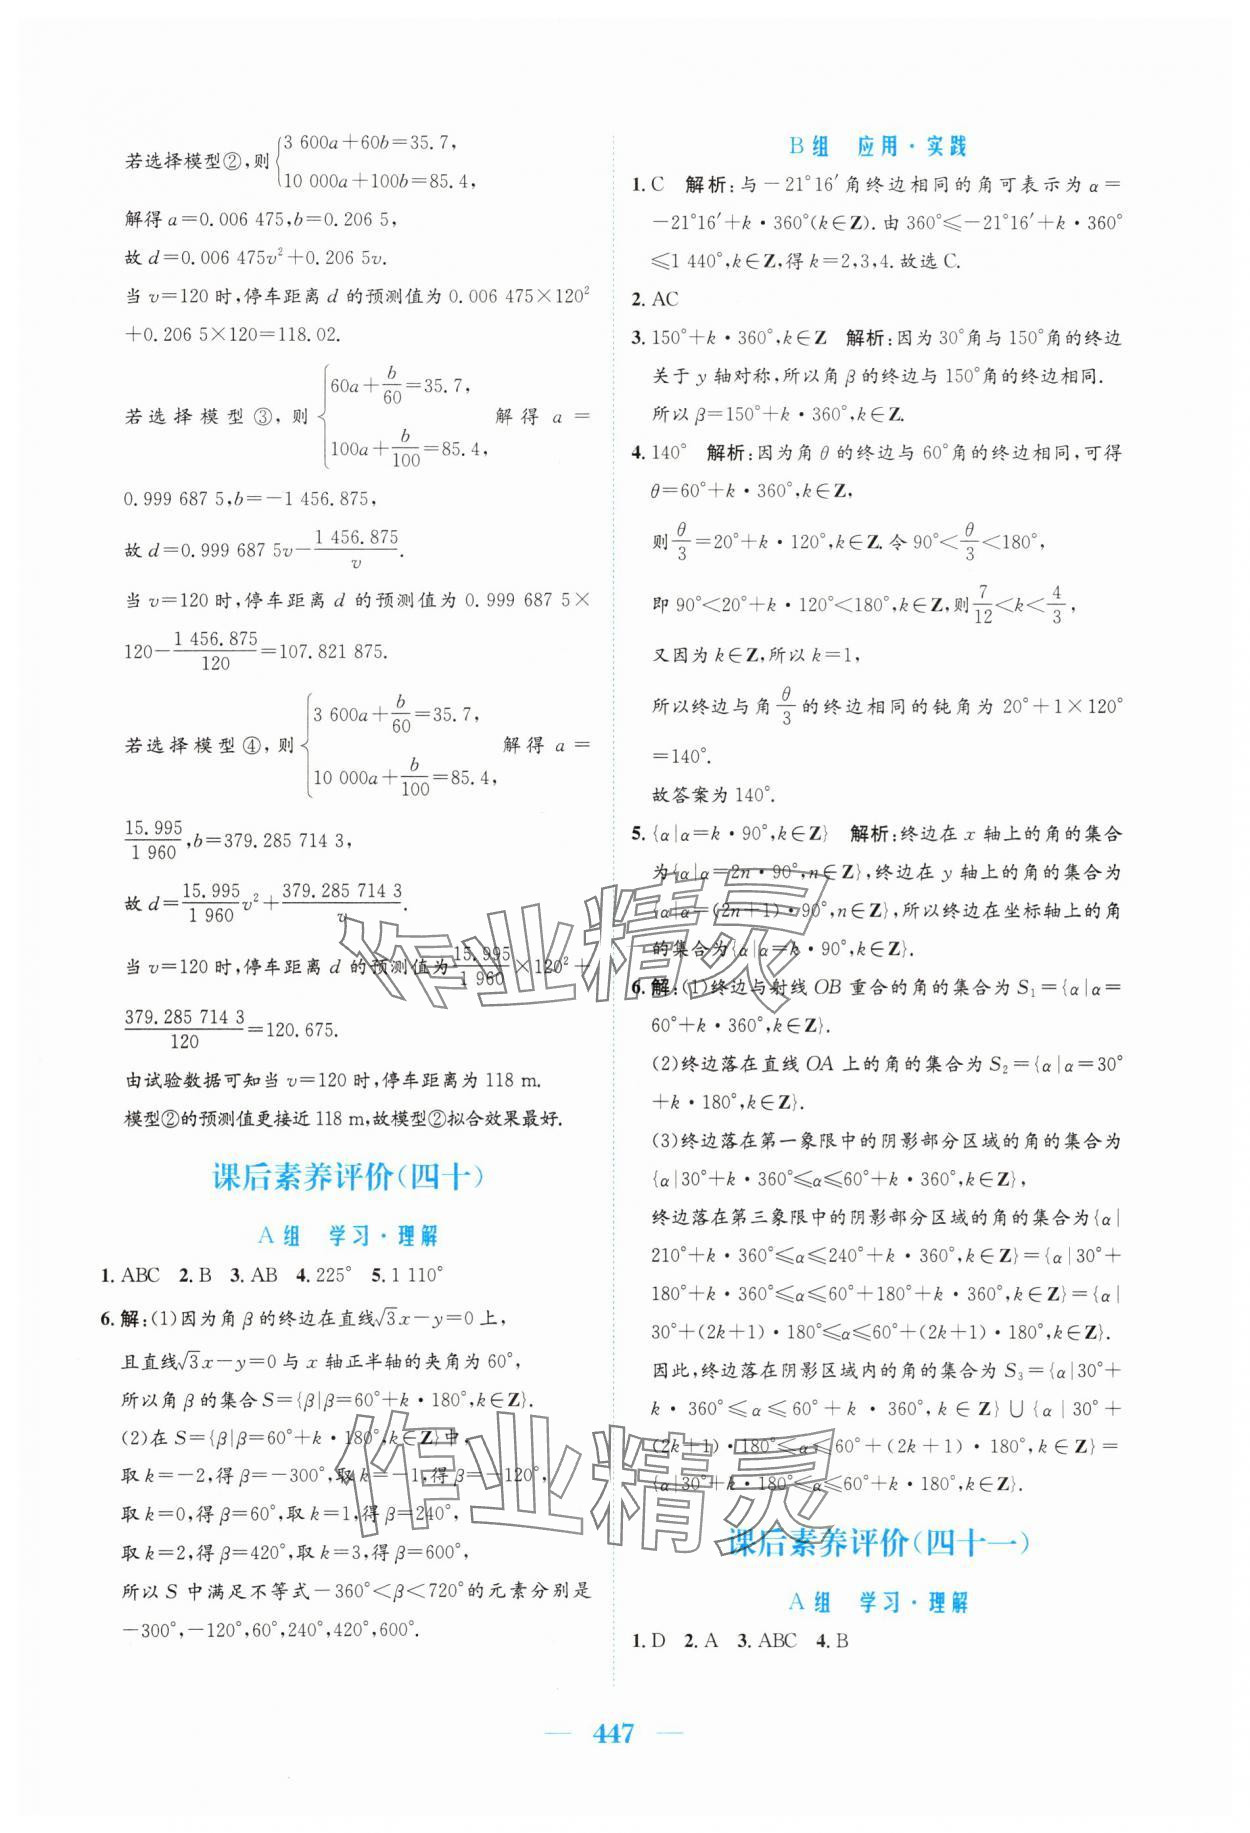 若选择模型②,则{3 600a+60b=35.7,
10 000a+100b=85.4,
解得 a=0.006 475,b=0.206 5,
故 d=0.006 475v²+0.206 5v.
当 v=120 时,停车距离 d 的预测值为 0.006 475×120²
+0.206 5×120=118.02.
若选择模型③,则{60a+b/60=35.7,
100a+b/100=85.4, 解得 a=
0.999 687 5,b=-1 456.875,
故 d=0.999 687 5v-1 456.875/v.
当 v=120 时,停车距离 d 的预测值为 0.999 687 5×
120-1 456.875/120=107.821 875.
若选择模型④,则{3 600a+b/60=35.7,
10 000a+b/100=85.4, 解得 a=
15.995/1 960,b=379.285 714 3,
故 d=15.995/1 960 v²+379.285 714 3/v.
当 v=120 时,停车距离 d 的预测值为15.995/1 960×120²+
379.285 714 3/120=120.675.
由试验数据可知当 v=120 时,停车距离为 118 m.
模型②的预测值更接近 118 m,故模型②拟合效果最好.
课后素养评价(四十)
A组 学习·理解
1. ABC 2. B 3. AB 4. 225° 5. 1 110°
6. 解:(1)因为角 β 的终边在直线√3x-y=0 上,
且直线√3x-y=0 与 x 轴正半轴的夹角为 60°,
所以角 β 的集合 S={β|β=60°+k·180°,k∈Z}.
(2)在 S={β|β=60°+k·180°,k∈Z}中,
取 k=-2,得 β=-300°,取 k=-1,得 β=-120°,
取 k=0,得 β=60°,取 k=1,得 β=240°,
取 k=2,得 β=420°,取 k=3,得 β=600°,
所以 S 中满足不等式-360°<β<720°的元素分别是
-300°,-120°,60°,240°,420°,600°.
B组 应用·实践
1. C 解析:与-21°16′角终边相同的角可表示为 α=
-21°16′+k·360°(k∈Z).由 360°≤-21°16′+k·360°
≤1 440°,k∈Z,得 k=2,3,4.故选 C.
2. AC
3. 150°+k·360°,k∈Z 解析:因为 30°角与 150°角的终边
关于 y 轴对称,所以角 β 的终边与 150°角的终边相同.
所以 β=150°+k·360°,k∈Z.
4. 140° 解析:因为角 θ 的终边与 60°角的终边相同,可得
θ=60°+k·360°,k∈Z,
则θ/3=20°+k·120°,k∈Z.令 90°<θ/3<180°,
即 90°<20°+k·120°<180°,k∈Z,则7/12<k<4/3,
又因为 k∈Z,所以 k=1,
所以终边与角θ/3的终边相同的钝角为 20°+1×120°
=140°.
故答案为 140°.
5. {α|α=k·90°,k∈Z} 解析:终边在 x 轴上的角的集合
为{α|α=2n·90°,n∈Z},终边在 y 轴上的角的集合为
{α|α=(2n+1)·90°,n∈Z},所以终边在坐标轴上的角
的集合为{α|α=k·90°,k∈Z}.
6. 解:(1)终边与射线 OB 重合的角的集合为 S₁={α|α=
60°+k·360°,k∈Z}.
(2)终边落在直线 OA 上的角的集合为 S₂={α|α=30°
+k·180°,k∈Z}.
(3)终边落在第一象限中的阴影部分区域的角的集合为
{α|30°+k·360°≤α≤60°+k·360°,k∈Z},
终边落在第三象限中的阴影部分区域的角的集合为{α|
210°+k·360°≤α≤240°+k·360°,k∈Z}={α|30°+
180°+k·360°≤α≤60°+180°+k·360°,k∈Z}={α|
30°+(2k+1)·180°≤α≤60°+(2k+1)·180°,k∈Z}.
因此,终边落在阴影区域内的角的集合为 S₃={α|30°+
k·360°≤α≤60°+k·360°,k∈Z}∪{α|30°+
(2k+1)·180°≤α≤60°+(2k+1)·180°,k∈Z}=
{α|30°+k·180°≤α≤60°+k·180°,k∈Z}.
课后素养评价(四十一)
A组 学习·理解
1. D 2. A 3. ABC 4. B
作业精灵
作业精灵
— 447 —